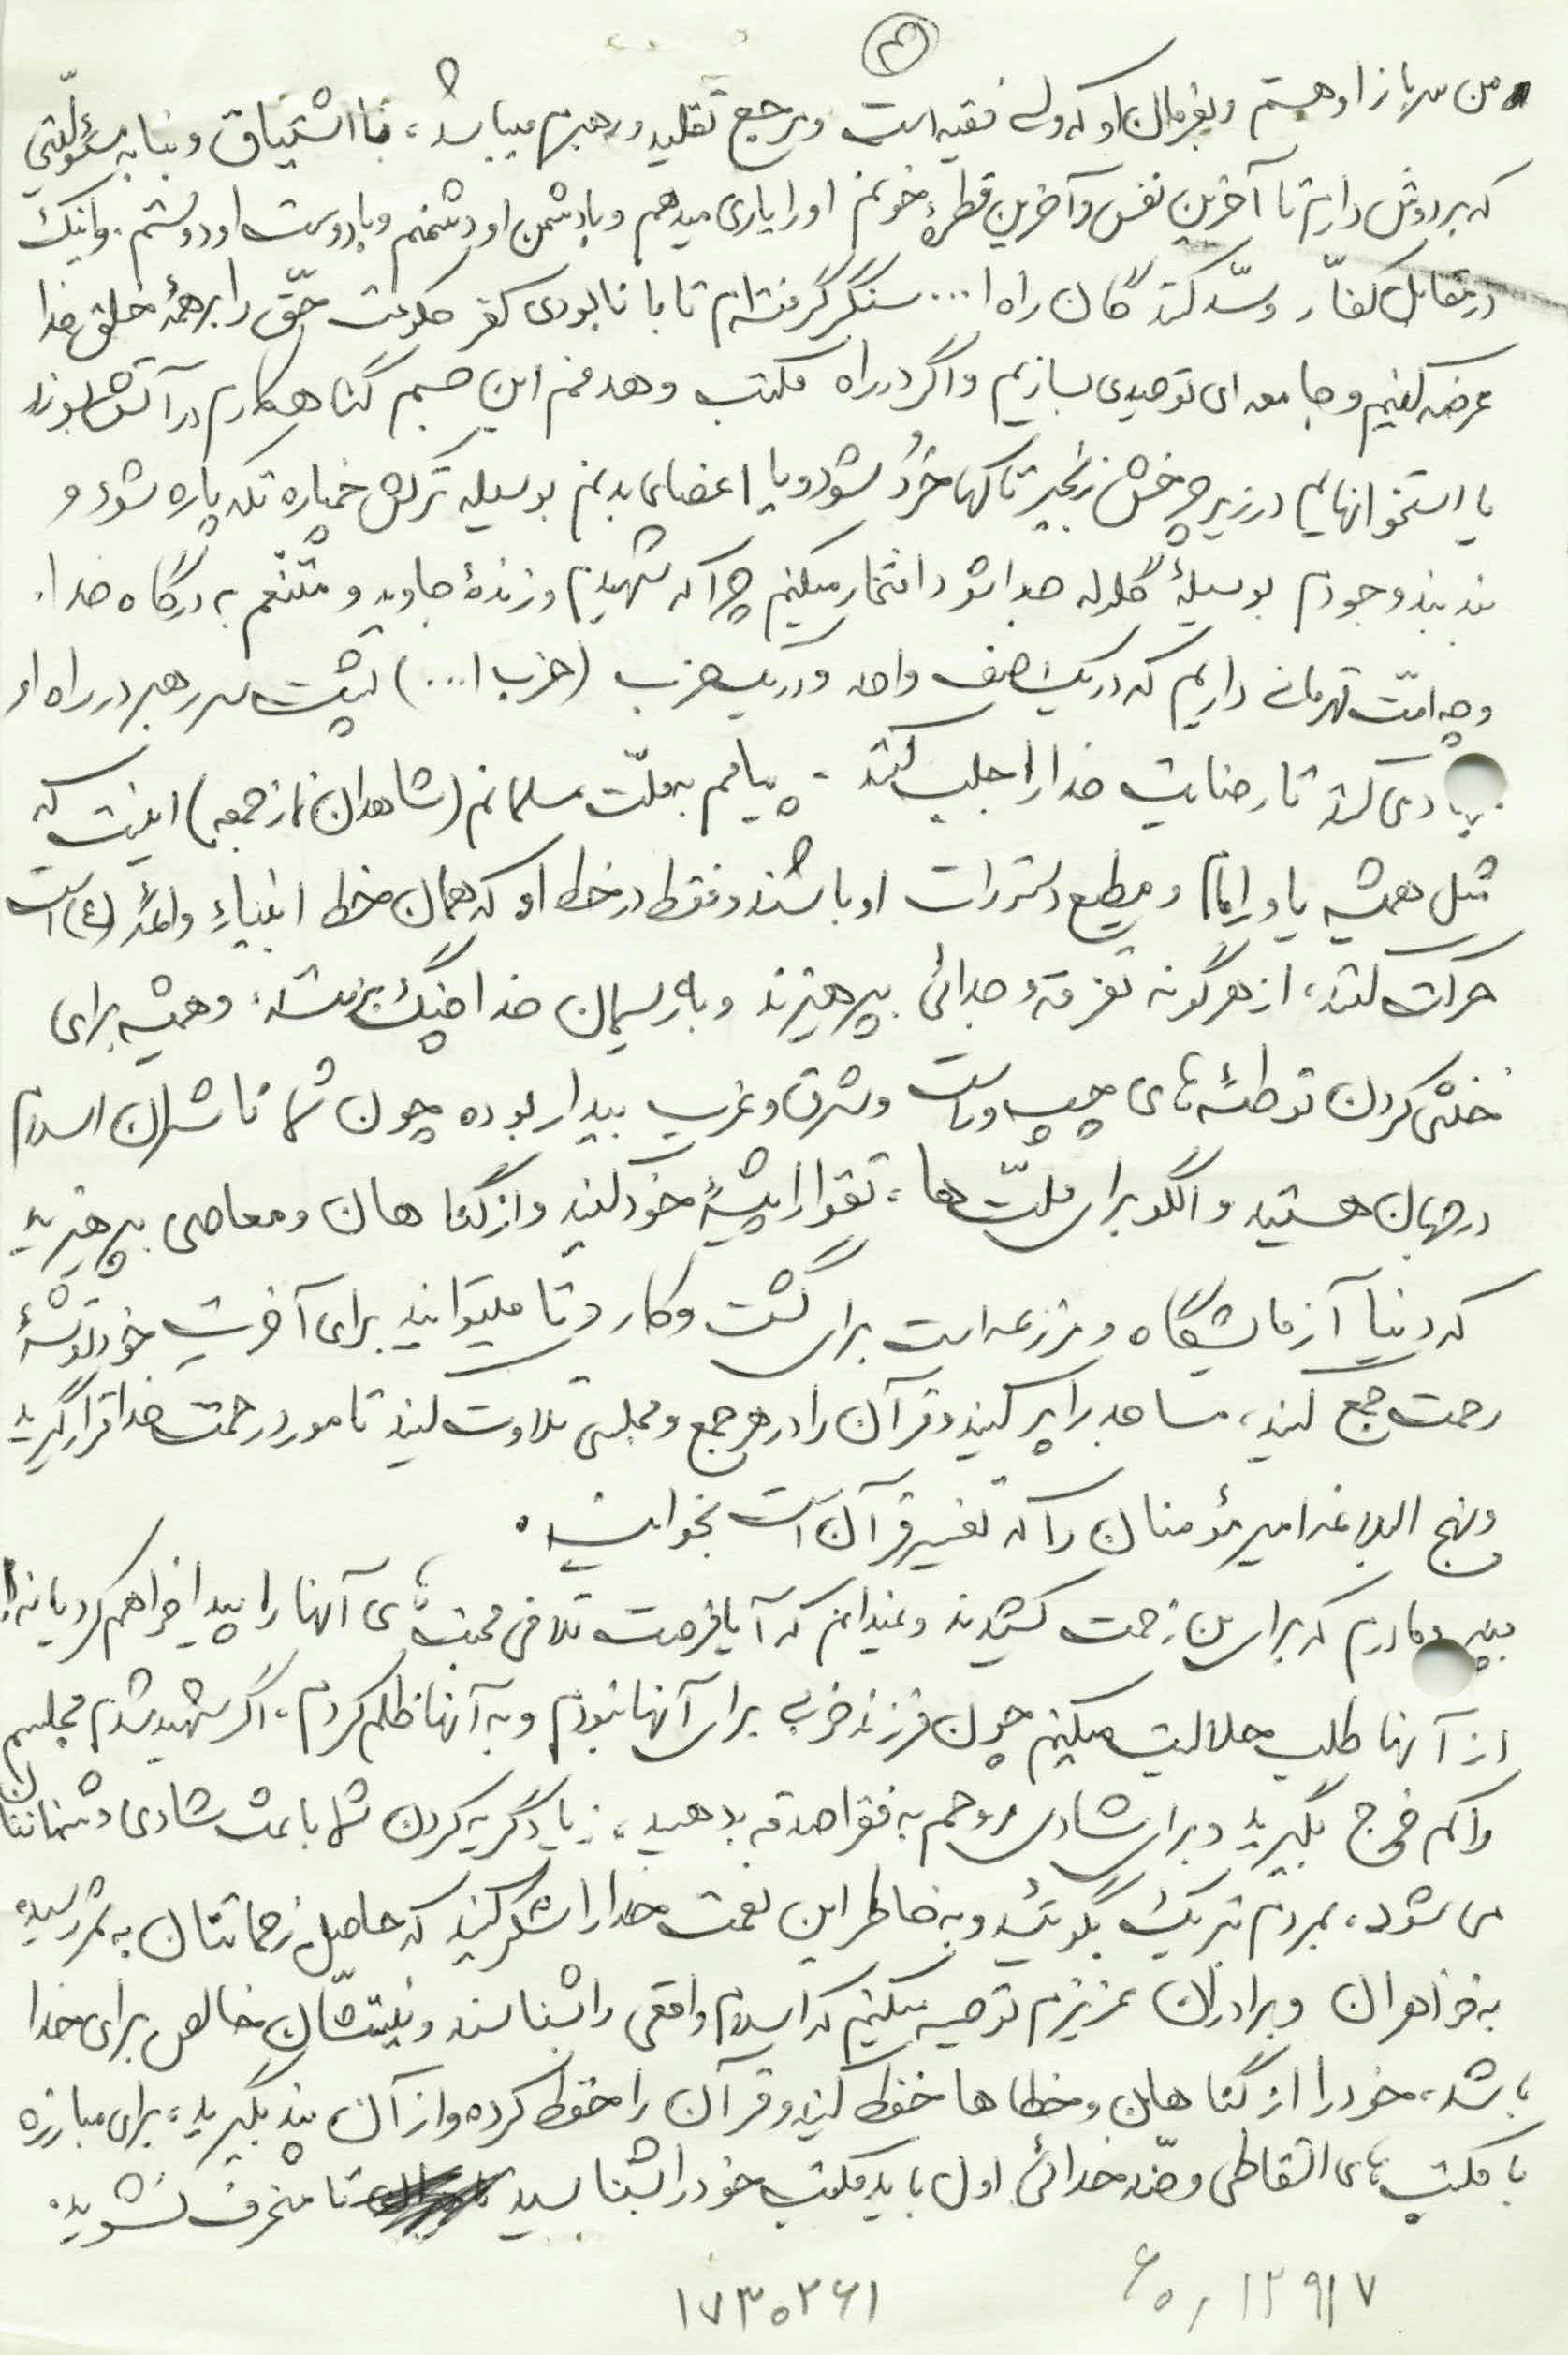 ۳
من سرباز او هستم و بفرمان او که ولی فقیه است و مرجع تقلید و رهبرم میباشد، با اشتیاق و بنا به مسئولّیتی
که بر دوش دارم تا آخرین نفس و آخرین قطرهٔ خونم او را یاری میدهم و با دشمن او دشمنم و با دوست او دوستم. و اینک
در مقابل کفّار و سّد کنندگان راه ا... سنگر گرفته‌ام تا با نابودی کفر حکومت حّق را بر همهٔ خلق خدا
عرضه کنیم و جامعه‌ای توحیدی بسازیم و اگر در راه مکتب و هدفم این جسم گناهکارم در آتش بسوزد
یا استخوانهایم در زیر چرخش زنجیر تانکها خُرد شود و یا اعضای بدنم بوسیله ترکش خمپاره تکه پاره شود و
بند بند وجودم بوسیلهٔ گلوله جدا شود افتخار میکنم چرا که شهیدم و زندهٔ جاوید و متنعّم به درگاه خدا.
و چه امّت قهرمانی داریم که در یک صف واحد و در یک حزب (حزب ا...) پشت سر رهبر در راه او
کنند تا رضایت خدا را جلب کنند. پیامم به ملّت مسلمانم (شاهدان نماز جمعه) اینست که
مثل همیشه یاور امام و مطیع دستورات او باشند و فقط در خط او که همان خط انبیاء و ائمّه (ع) است
حرکت کنند، از هرگونه تفرقه و جدائی بپرهیزند و به ریسمان خدا چنگ بزنند. و همیشه برای
خنثی کردن توطئه‌های چپ و راست و شرق و غرب بیدار بوده چون شما ناشران اسلام
در جهان هستید و الگو برای ملّت‌ها، تقوا را پیشهٔ خود کنید و از گناهان و معاصی بپرهیزید
که دنیا آزمایشگاه و مزرعه است برای کشت و کار و تا میتوانید برای آخرت خود توشهٔ
رحمت جمع کنید، مساجد را پر کنید و قرآن را در هر جمع و مجلسی تلاوت کنید تا مورد رحمت خدا قرار گیرید
و نهج البلاغه امیر مؤمنان را که تفسیر قرآن است بخوانید.
بپدر و مادرم که برای من زحمت کشیدند و نمیدانم که آیا فرصت تلافی محبت‌های آنها را پیدا خواهم کرد یا نه!
از آنها طلب حلالیت میکنم چون فرزند خوبی برای آنها نبودم و به آنها ظلم کردم. اگر شهید شدم مجلسم
را کم خرج بگیرید و برای شادی روحم به فقرا صدقه بدهید، زیاد گریه کردن شما باعث شادی دشمنانتان
می شود، بمردم تبریک بگوئید و به خاطر این نعمت خدا را شکر کنید که حاصل زحماتتان به ثمر رسیده
به خواهران و برادران عزیزم توصیه میکنم که اسلام واقعی را بشناسند و نیتشان خالص برای خدا
باشد، خود را از گناهان و خطاها حفظ کنید و قرآن را حفظ کرده و از آن پند بگیرید، برای مبارزه
با مکتب‌های التقاطی و ضّد خدائی اول باید مکتب خود را بشناسید تا منحرف نشوید.
۱۷۳۰۲۶۱